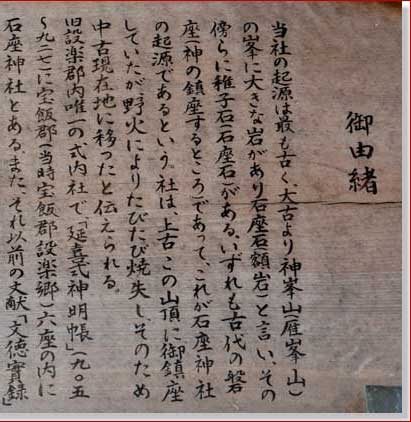 御由緒
当社の起源は最も古く、大古より神峯山(雁峯山)
の峯に大きな岩があり石座石(額岩)と言い、その
傍らに稚子石(石座石)がある、いずれも古代の磐
座(神の鎮座するところ)であって、これが石座神社
の起源であるという。社は、上古この山頂に御鎮座
していたが野火によりたびたび焼失し、そのため
中古現在地に移ったと伝えられる。
旧設楽郡内唯一の式内社で「延喜式神明帳」(九〇五
〜九二七)に宝飯郡(当時宝飯郡設楽郷)六座の内に
石座神社とある。また、それ以前の文献「文徳實録」